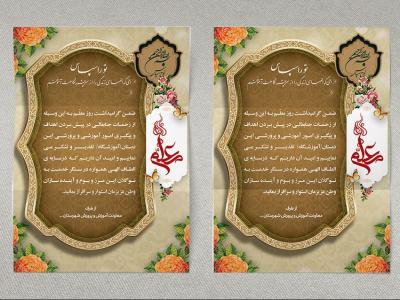 تو را سپاس
ضمن گرامیداشت روز معلم به این وسیله
از زحمات جنابعالی در پیش بردن اهداف
و پیگیری امور آموزشی و پرورشی این
دبستان/آموزشگاه تقدیر و تشکر می
نماییم و امید آن داریم که در سایه ی
الطاف الهی همواره در سنگر خدمت به
نوگلان این مرز و بوم و آینده سازان
وطن عزیزمان استوار و سرافراز بمانید.
از طرف
معاونت آموزش و پرورش شهرستان ...
معلم
تو را سپاس
ضمن گرامیداشت روز معلم به این وسیله
از زحمات جنابعالی در پیش بردن اهداف
و پیگیری امور آموزشی و پرورشی این
دبستان/آموزشگاه تقدیر و تشکر می
نماییم و امید آن داریم که در سایه ی
الطاف الهی همواره در سنگر خدمت به
نوگلان این مرز و بوم و آینده سازان
وطن عزیزمان استوار و سرافراز بمانید.
از طرف
معاونت آموزش و پرورش شهرستان ...
معلم